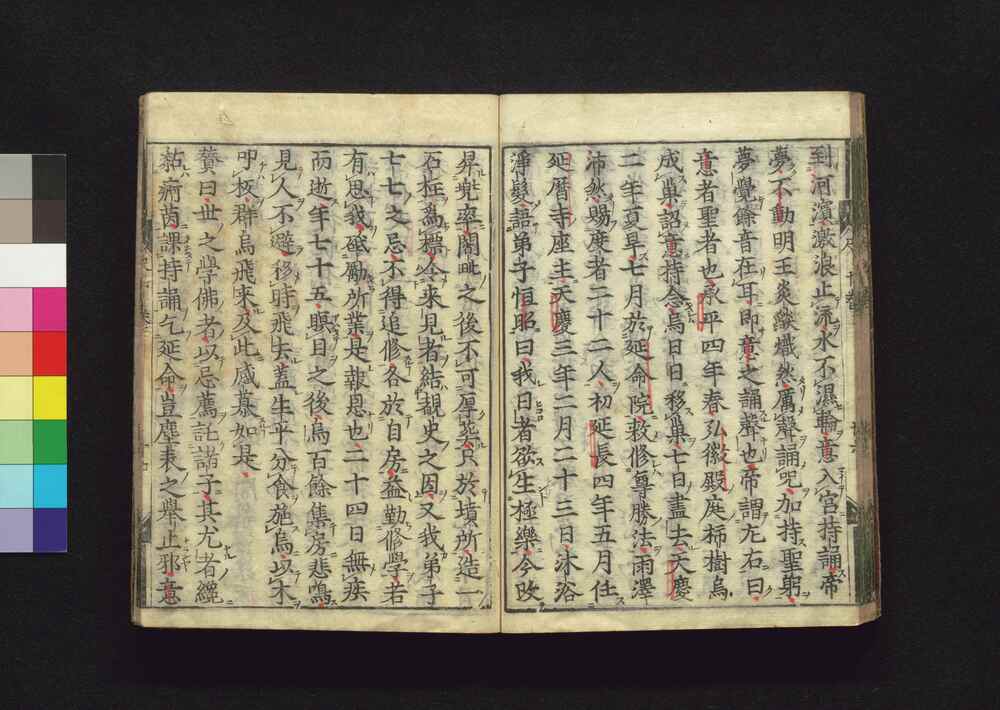 到河濱激浪止流水不濕輪意入宮持誦帝
夢不動明王炎𦦨熾然厲聲誦呪加持聖躬
夢覺餘音在耳即意之誦聲也帝謂左右曰
意者聖者也承平四年春弘徽殿庭柿樹烏
成巢詔意持念烏日日移巢七日盡去天慶
二年夏旱七月於延命院救修尊勝法雨澤
沛然賜度者二十二人初延長四年五月任
延曆寺座主天慶三年二月二十三日沐浴
淨髮語弟子恒昭曰我日者欲生極樂今改
昇兠率闍毗之後不可厚葬只於墳所造一
石柱為標令來見者結覩史之因又我弟子
七七之忌不得追修各於自房益勤修學若
有思我砥勵所業是報恩也二十四日無疾
而逝年七十五瞑目之後烏百餘集房悲鳴
見人不避移時飛去蓋生平分食施烏以木
叩板群烏飛來及此感慕如是
賛曰世之學佛者以忌薦託諸子其尤者纔
黏病茵課持誦乞延命豈塵表之舉止邪意